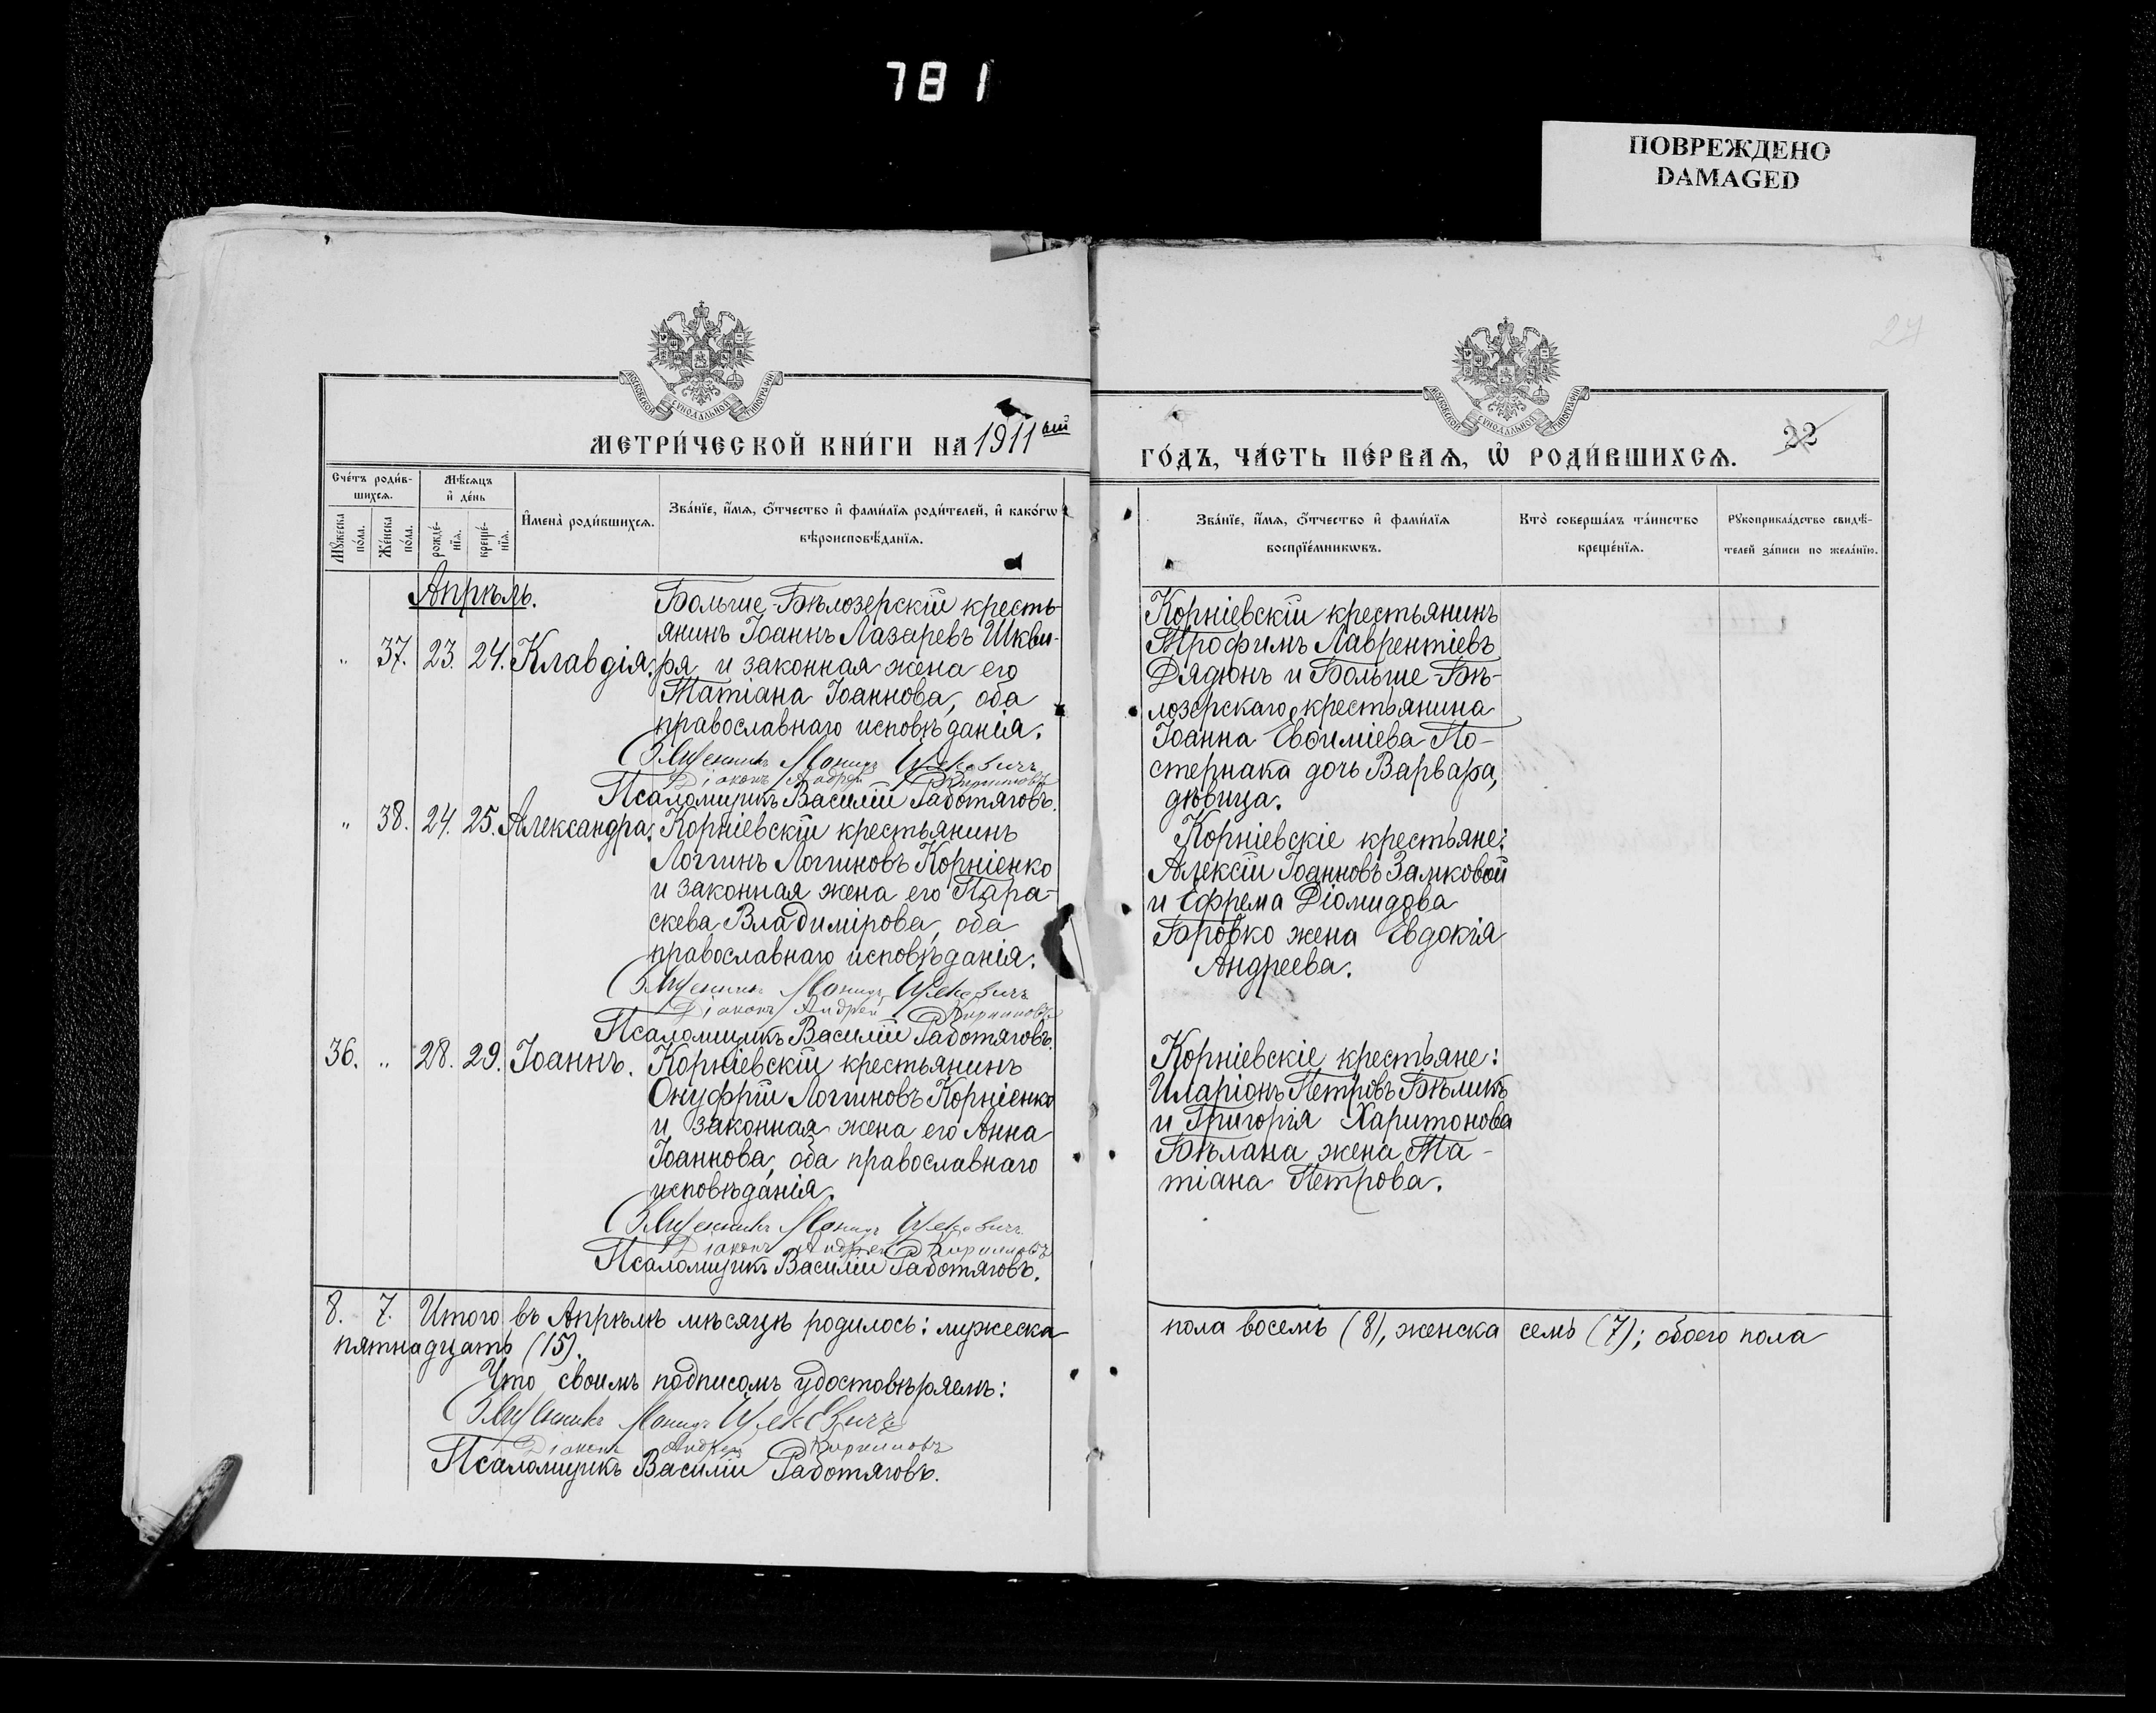 781
ПОВРЕЖДЕНО
DAMAGED
27
МОСКОВСКОЙ СУНОДАЛЬНОЙ ТИПОГРАФІИ
МОСКОВСКОЙ СУНОДАЛЬНОЙ ТИПОГРАФІИ
МЕТРИ́ЧЕСКОЙ КНИ́ГИ НА 1911ый
ГО́ДЪ, ЧА́СТЬ ПЕ́РВАѦ, Ѡ҆ РОДИ́ВШИХСѦ. 22
Сче́тъ роди́в-
шихсѧ.
Мꙋ́жеска
по́ла.
Же́нска
по́ла.
Мѣ́сѧцъ
и҆ де́нь
рожде́-
нїѧ.
креще́-
нїѧ.
И҆мена̀ роди́вшихсѧ.
Зва́нїе, и҆́мѧ, ѻ҆́тчество и҆ фами́лїѧ роди́телей, и҆ како́гѡ
вѣроисповѣ́данїѧ.
Зва́нїе, и҆́мѧ, ѻ҆́тчество и҆ фами́лїѧ
воспрїе́мникѡвъ.
Кто̀ соверша́лъ та́инство
креще́нїѧ.
Рꙋкоприкла́дство свидѣ́-
телей за́писи по жела́нїю.
Апрѣль.
" 37. 23. 24. Клавдія.
Больше-Бѣлозерскій кресть-
янинъ Іоаннъ Лазаревъ Шкви-
ря и законная жена его
Татіана Іоаннова, оба
православнаго исповѣданія.
Священникъ
Діаконъ Андрей Кирилловъ
Псаломщикъ Василій Работяговъ.
Корніевскій крестьянинъ
Трофимъ Лаврентіевъ
Дядюнъ и Больше-Бѣ-
лозерскаго крестьянина
Іоанна Евѳиміева По-
стернака дочь Варвара,
дѣвица.
" 38. 24. 25. Александра.
Корніевскій крестьянинъ
Логгинъ Логгиновъ Корніенко
и законная жена его Пара-
скева Владимірова, оба
православнаго исповѣданія.
Священникъ
Діаконъ Андрей Кирилловъ
Псаломщикъ Василій Работяговъ.
Корніевскіе крестьяне:
Алексій Іоанновъ Замковой
и Ефрема Діомидова
Бровко жена Евдокія
Андреева.
36. " 28. 29. Іоаннъ.
Корніевскій крестьянинъ
Онуфрій Логгиновъ Корніенко
и законная жена его Анна
Іоаннова, оба православнаго
исповѣданія.
Священникъ
Діаконъ Андрей Кирилловъ
Псаломщикъ Василій Работяговъ.
Корніевскіе крестьяне:
Иларіонъ Петровъ Бѣликъ
и Григорія Харитонова
Бѣлана жена Та-
тіана Петрова.
8. 7. Итого въ Апрѣлѣ мѣсяцѣ родилось: мужеска
пола восемь (8), женска семь (7); обоего пола
пятнадцать (15).
Что своимъ подписомъ удостовѣряемъ:
Священникъ
Діаконъ Андрей Кирилловъ
Псаломщикъ Василій Работяговъ.